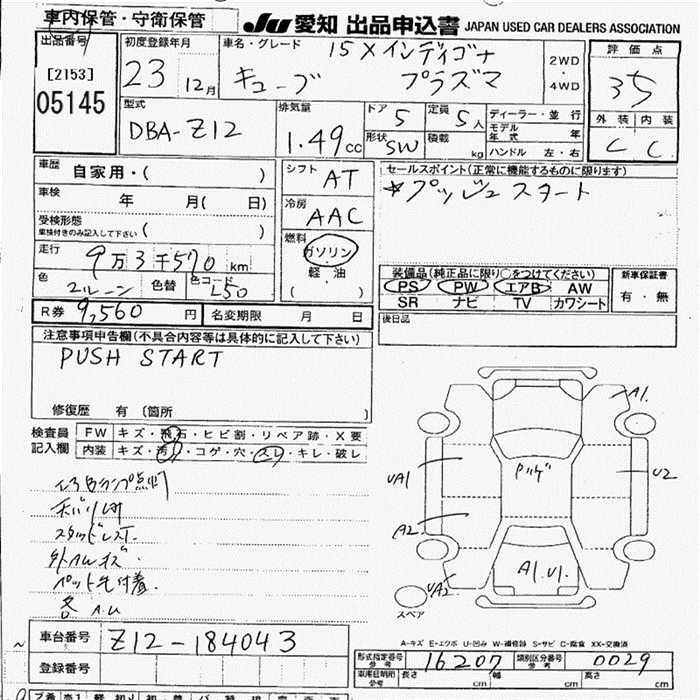 車内保管・守衛保管
JU 愛知 出品申込書 JAPAN USED CAR DEALERS ASSOCIATION
出品番号
[2153]
05145
初度登録年月
23 12月
車名・グレード 15X インディゴナ
キューブ プラズマ
2WD
・
4WD
評価点
35
外装 内装
C C
型式
DBA-Z12
排気量
1.49cc
ドア 5
定員 5人
形状 SW
積載 kg
ディーラー・並行
モデル年式 年
ハンドル 左・右
車歴 自家用・( )
車検 年 月( 日)
受検形態
車検付きのみ記入して下さい ( )
走行 9万3千570km
色
色替
色コード L50
シフト AT
冷房 AAC
燃料
ガソリン
軽・油
( )
セールスポイント(正常に機能するものに限ります)
*プッシュスタート
装備品(純正品に限り○をつけてください)
PS PW エアB AW
SR ナビ TV カワシート
新車保証書
有・無
後日品
R券 9,560円
名変期限 月 日
注意事項申告欄(不具合内容等は具体的に記入して下さい)
PUSH START
修復歴 有 (箇所 )
検査員
記入欄
FW キズ・飛石・ヒビ割・リペア跡・X要
内装 キズ・汚・コゲ・穴・スレ・キレ・破レ
スタッドレスT.
ペット先付着.
A1.
UA1
U2
A2
UA2
A1.U1.
スペア
A-キズ E-エクボ U-凹み W-補修跡 S-サビ C-腐食 XX-交換済
車台番号 Z12-184043
登録番号
形式指定番号
参考
16207
類別区分番号
参考
0029
車庫証明用
参考
長さ cm
幅 cm
高さ cm